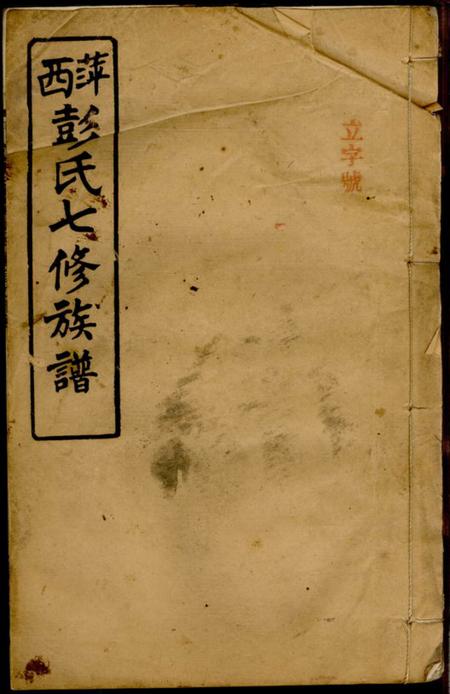 立字號
萍西彭氏七修族譜